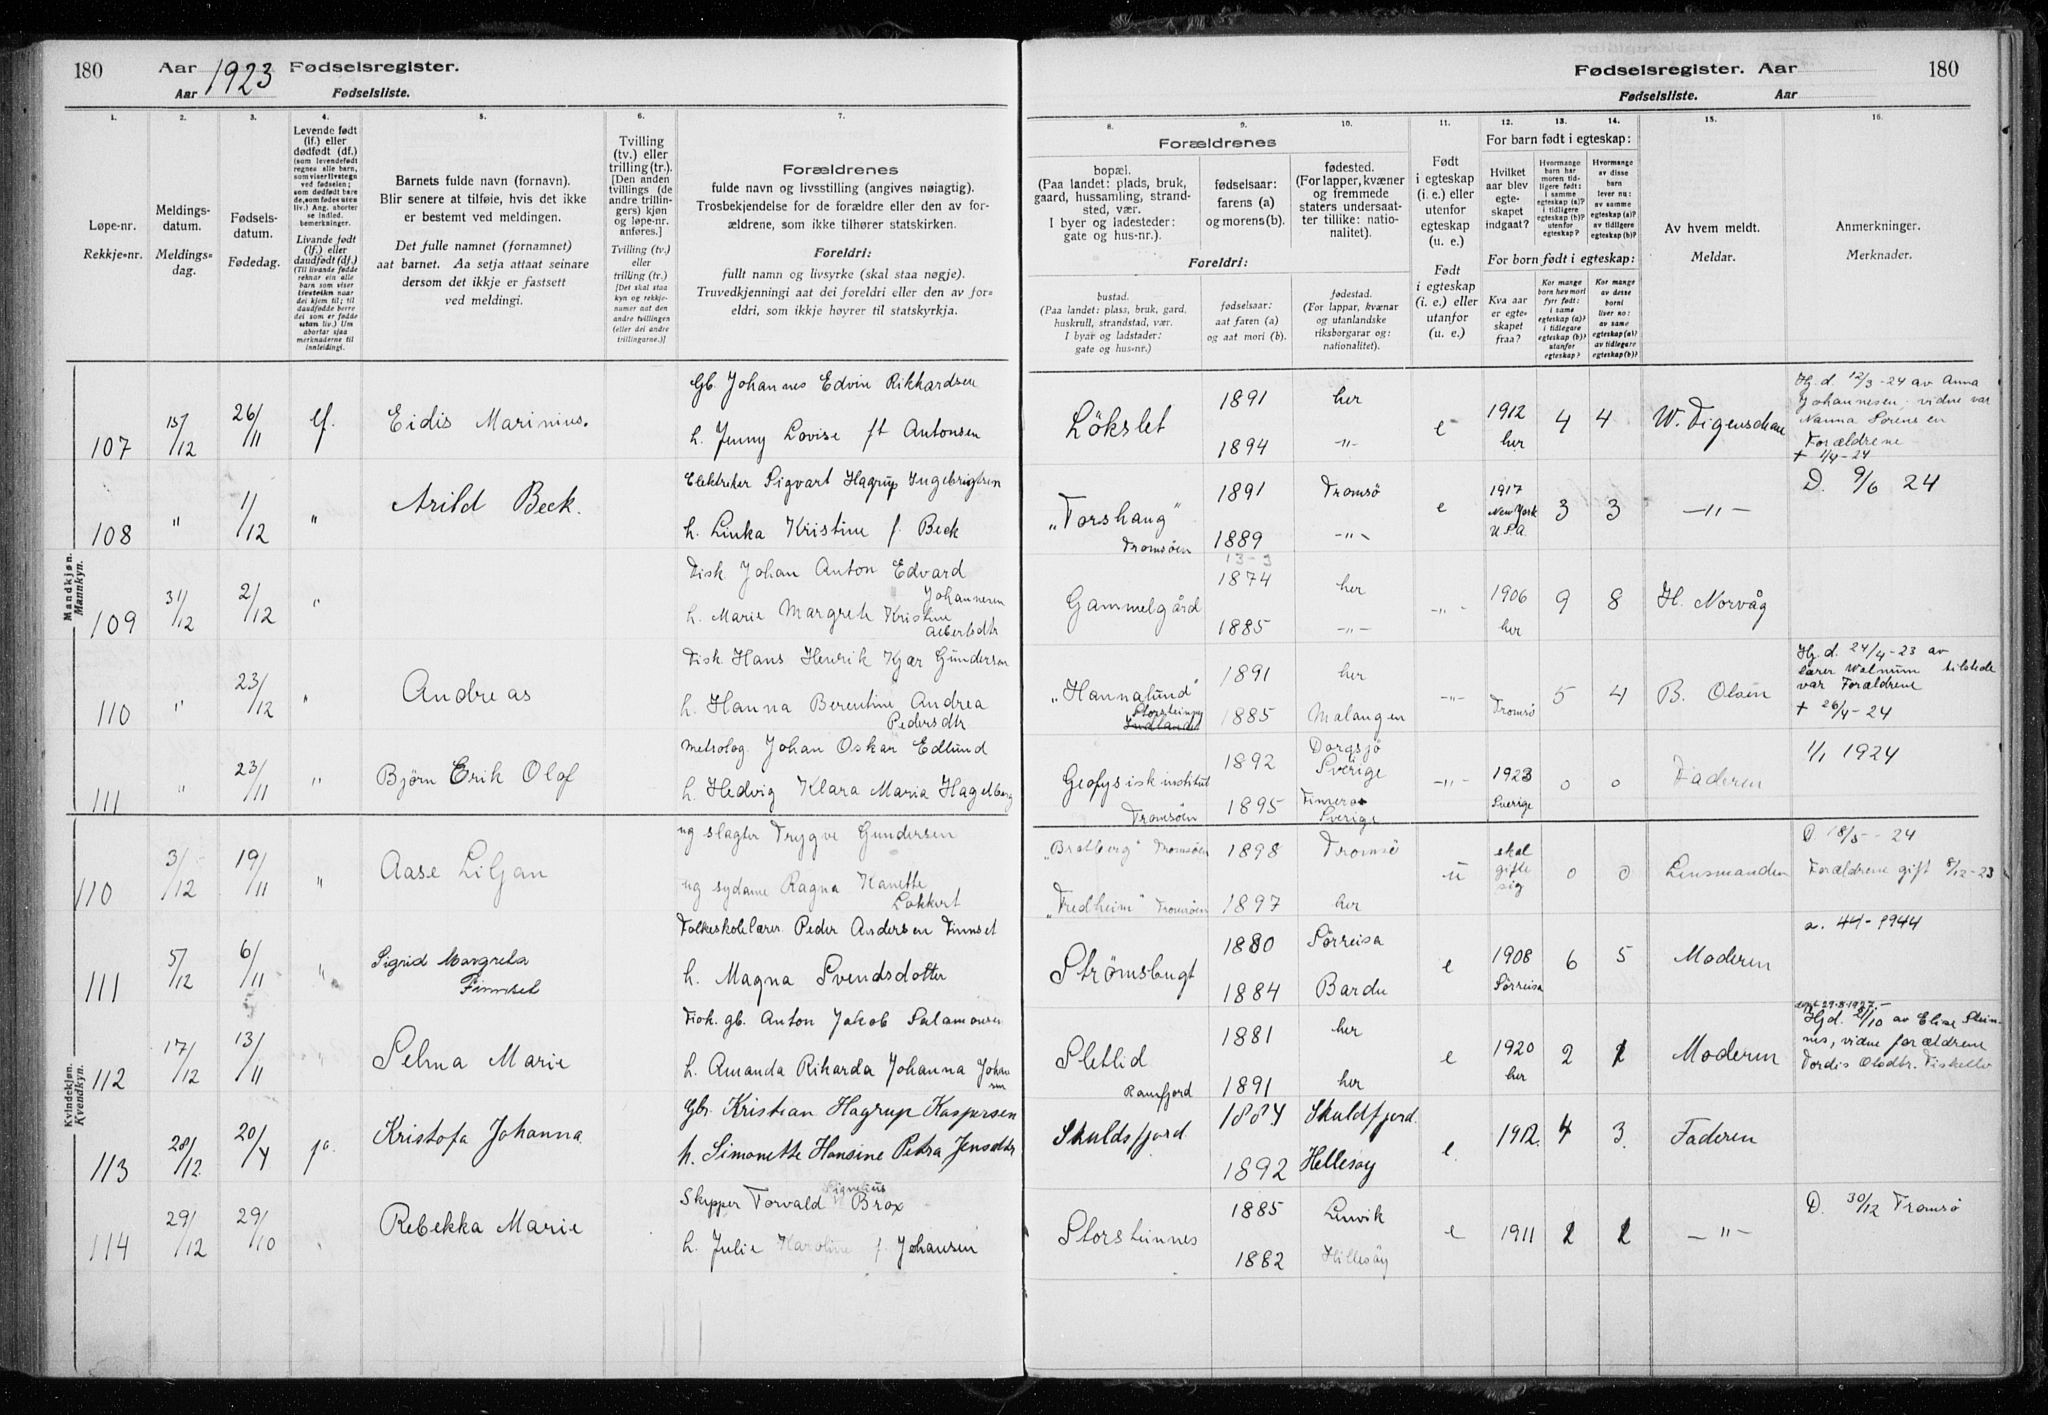 180 Aar 1923 Fødselsregister.
Aar Fødselsliste.
Fødselsregister. Aar 180
Fødselsliste. Aar
1. 2. 3. 4. 5. 6. 7. 8. 9. 10. 11. 12. 13. 14. 15. 16.
Løpe-nr.
Rekkje-nr.
Meldings-
datum.
Meldings-
dag.
Fødsels-
datum.
Fødedag.
Levende født
(lf.) eller
dødfødt (df.)
Livande født
(lf.) eller
daudfødt (df.)
Barnets fulde navn (fornavn).
Blir senere at tilføie, hvis det ikke
er bestemt ved meldingen.
Det fulle namnet (fornamnet)
aat barnet. Aa setja attaat seinare
dersom det ikkje er fastsett
ved meldingi.
Tvilling
(tv.) eller
trilling (tr.)
[Den anden
tvillings (de
andre trillin-
gers) kjøn
og løpe-nr.
anføres.]
Tvilling (tv.)
eller
trilling (tr.)
[Det skal staa
kyn og rekkje-
numer aat den
andre tvillingen
(eller dei andre
trillingarne.)]
Forældrenes
fulde navn og livsstilling (angives nøiagtig).
Trosbekjendelse for de forældre eller den av for-
ældrene, som ikke tilhører statskirken.
Foreldri:
fullt namn og livsyrke (skal staa nøgje).
Truvedkjenningi aat dei foreldri eller den av for-
eldri, som ikkje høyrer til statskyrkja.
Forældrenes
bopæl.
(Paa landet: plads, bruk,
gaard, hussamling, strand-
sted, vær.
I byer og ladesteder:
gate og hus-nr.).
fødselsaar:
farens (a)
og morens (b).
fødested.
(For lapper, kvæner
og fremmede
staters undersaat-
ter tillike: natio-
nalitet).
Foreldri:
bustad.
(Paa landet: plass, bruk, gard,
huskrull, strandstad, vær.
I byar og ladstader:
gate og hus-nr.)
fødselsaar:
aat faren (a)
og aat mori (b).
fødestad.
(For lappar, kvænar
og utanlandske
riksborgarar og:
nationalitet).
Født
i egteskap
(i. e.) eller
utenfor
egteskap
(u. e.)
Født
i egteskap
(i. e.) eller
utanfor
(u. e.)
For barn født i egteskap:
Hvilket
aar blev
egte-
skapet
indgaat?
For born født i egteskap:
Kva aar
er egte-
skapet
fraa?
Av hvem meldt.
Meldar.
Anmerkninger.
Merknader.
Mandkjøn.
Mannkyn.
Gb. Johannes Edvin Rikkardsen
107 15/12 26/11 lf. Eidis Marinius. h. Jenny Lovise ft Antonsen
Løkslet 1891 her
1894 —"— e 1912 her 4 4 W. Figenschau
Hj. d. 12/3-24 av Anna
Johannesen, vidne var
Nanna Sørensen
Forældrene
+ 1/4-24
Elektriker Sigvart Hagrup Ingebrigtsen
108 " 1/12 " Arild Beck. h. Linka Kristine f. Beck
"Forshaug" Tromsøen 1891 Tromsø
1889 —"— e 1917 New York U.S.A. 3 3 —"— D. 9/6 24
Fisk Johan Anton Edvard
Johannesen
109 31/12 2/12 " h. Marie Margrete Kristine
Albertsdtr
Gammelgård 13-3 1874 her
1885 —"— —"— 1906 her 9 8 H. Norvåg
Fisk. Hans Henrik Kjær Gundersen
110 " 23/12 " Andreas h. Hanna Berentine Andrea
Pedersdtr
"Hannalund" Storsteinnes 1891 her
1885 Malangen —"— Tromsø 5 4 B. Olsen
Hj. d. 24/4-23 av
lærer Walnum tilstede
var Forældrene
+ 26/4-24
Metrolog. Johan Oskar Edlund
111 " 23/11 " Bjørn Erik Olof h. Hedvig Klara Maria Hagelberg
Geofysisk institut Tromsøen 1892 Dorgsjö Sverige
1895 Sverige —"— 1923 Sverige 0 0 Faderen 1/1 1924
Kvindekjøn.
Kvendkyn.
ug slagter Trygve Gundersen
110 3/12 19/11 " Aase Liljan ug sydame Ragna Hanette
Lokkert
"Bratberg" Tromsøen 1898 Tromsø
"Fredheim" Tromsøen 1897 her u skal gifte sig 0 0 Lensmanden
D. 18/5-24
Forældrene gift 8/12-23
Folkeskolelærer Peder Andersen Finnset
111 5/12 6/11 " Sigrid Margreta
Finnset h. Magna Svendsdotter
Strømsbugt 1880 Sørreisa
1884 Bardu e 1908 Sørreisa 6 5 Moderen
a. 44-1944
Fisk. gb. Anton Jakob Salamonsen
112 17/12 13/11 " Selma Marie h. Amanda Rikarda Johanna Johansen
Sletlid Ramfjord 1881 her
1891 her e 1920 her 2 1 Moderen
døpt 29.8.1927.
Hjd. 2/10 av Elise Stein-
nes, vidne forældrene
Tordis Olsdtr.
Gbr. Kristian Hagrup Kaspersen
113 28/12 20/4 Kristofa Johanna h. Simonette Hansine Petra Jensdtr
Skuldsfjord. 1884 Skuldsfjord.
1892 Hellesøy e. 1912. 4 3. Faderen
Skipper Torvald Signelius Brox
114 29/12 29/10 Rebekka Marie h. Julie Karoline f. Johansen
Storsteinnes 1885 Lenvik
1882 Hillesøy e 1911 —"—
D. 30/12 Tromsø